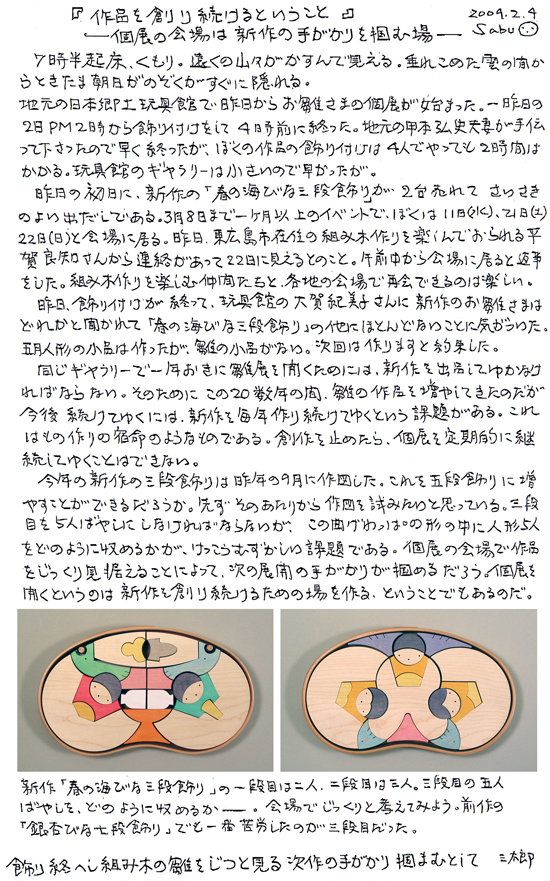 『作品を創り続けるということ』
2009.2.4
―個展の会場は新作の手がかりを掴む場―
Sabu
7時半起床、くもり。遠くの山々がかすんで見える。垂れこめた雲の間か
らときたま朝日がのぞくがすぐに隠れる。
地元の日本郷土玩具館で昨日からお雛さまの個展が始まった。一昨日の
2日PM2時から飾り付けをして4時前に終った。地元の甲本弘史夫妻が手伝
って下さったので早く終ったが、ぼくの作品の飾り付けは4人でやっても2時間は
かかる。玩具館のギャラリーは小さいので早かったが。
昨日の初日に、新作の「春の海びな三段飾り」が2台売れてさいさき
のよい出だしである。3月8日まで一ヶ月以上のイベントで、ぼくは11日(水)、21日(土)
22日(日)と会場に居る。昨日、東広島市在住の組み木作りを楽しんでおられる平
賀良知さんから連絡があって22日に見えるとのこと。午前中から会場に居ると返事
をした。組み木作りを楽しむ仲間たちと、各地の会場で再会できるのは楽しい。
昨日、飾り付けが終って、玩具館の大賀紀美子さんに新作のお雛さまは
どれかと聞かれて「春の海びな三段飾り」の他にほとんどないことに気がついた。
五月人形の小品は作ったが、雛の小品がない。次回は作りますと約束した。
同じギャラリーで一年おきに雛展を開くためには、新作を出品してゆかなけ
ればならない。そのためにこの20数年の間、雛の作品を増やしてきたのだが
今後続けてゆくには、新作を毎年作り続けてゆくという課題がある。これ
はもの作りの宿命のようなものである。創作を止めたら、個展を定期的に継
続してゆくことはできない。
今年の新作の三段飾りは昨年の9月に作図した。これを五段飾りに増
やすことができるだろうか。先ずそのあたりから作図を試みたいと思っている。三段
目を5人ばやしにしなければならないが、この曲げわっぱの形の中に人形5人
をどのように収めるかが、けっこうむずかしい課題である。個展の会場で作品
をじっくり見据えることによって、次の展開の手がかりが掴めるだろう。個展を
開くというのは新作を創り続けるための場を作る、ということでもあるのだ。
新作「春の海びな三段飾り」の一段目は二人、二段目は三人。三段目の五人
ばやしを、どのように収めるか―。会場でじっくりと考えてみよう。前作の
「銀杏びな七段飾り」でも一番苦労したのが三段目だった。
飾り終へし組み木の雛をじっと見る次作の手がかり掴まむとして 三太郎